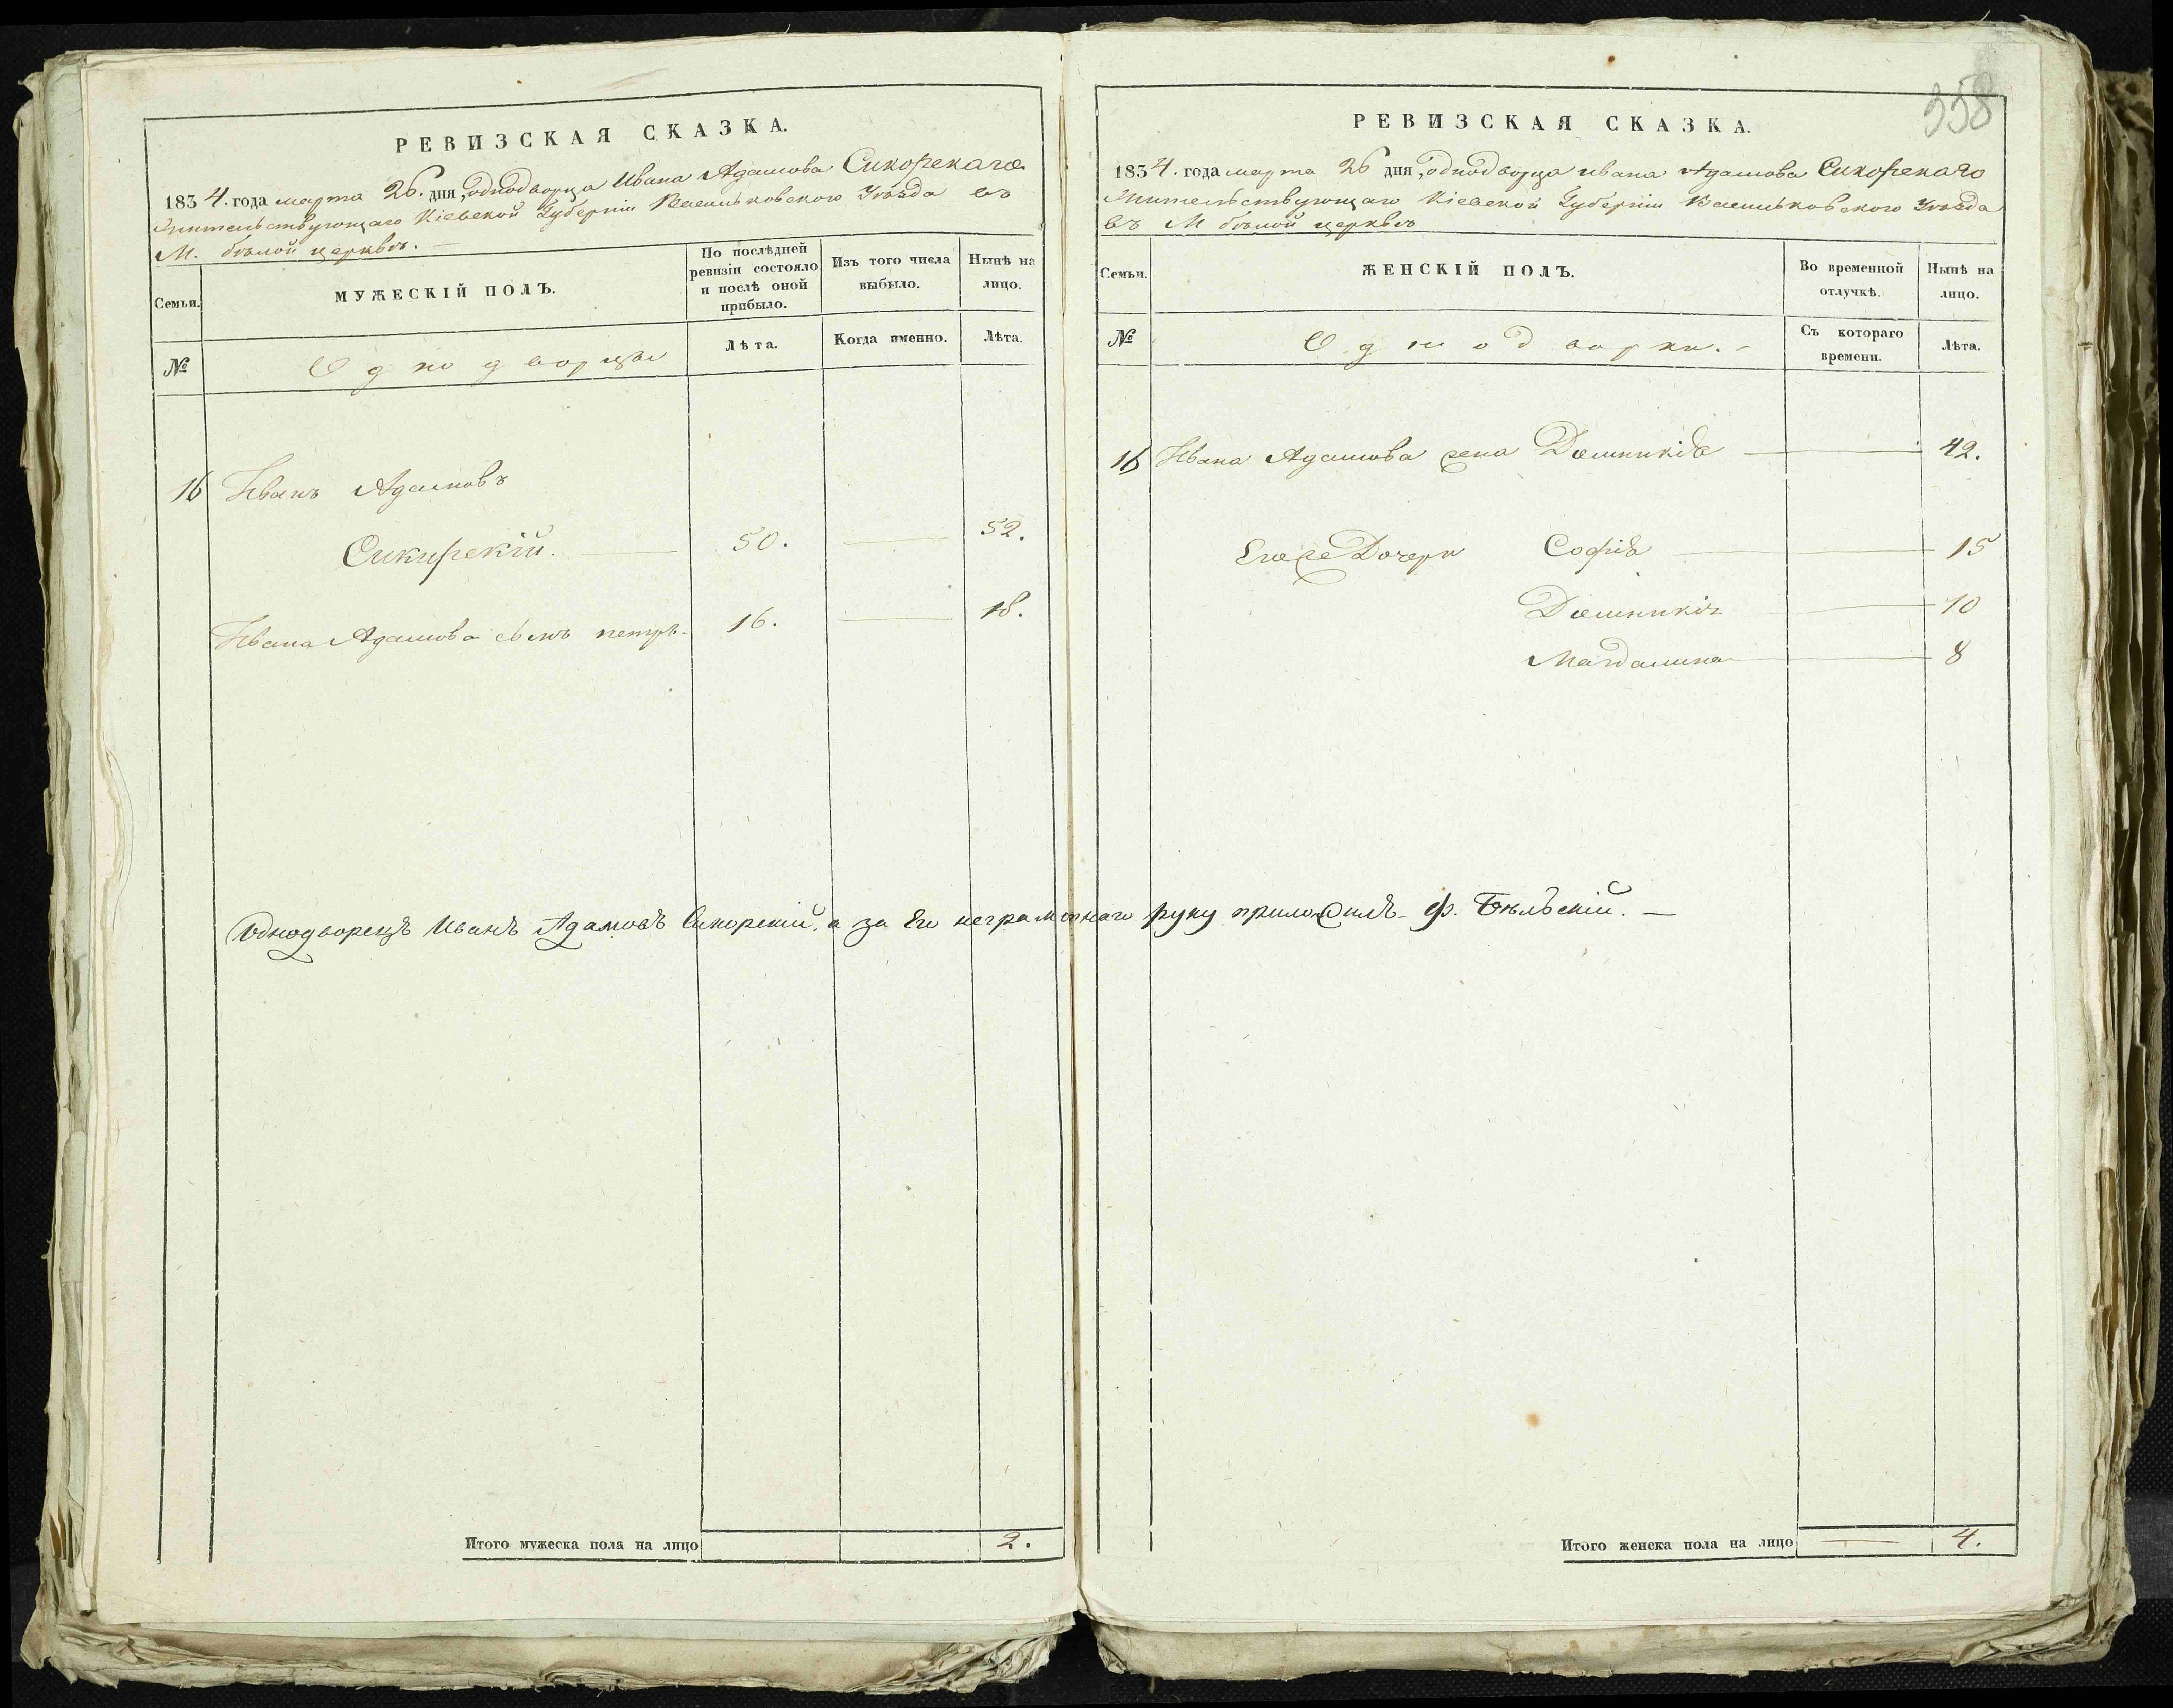 358
РЕВИЗСКАЯ СКАЗКА.
1834. года марта 26. дня, однодворца Ивана Адамова Сикорскаго
Жительствующаго Кіевской Губерніи Васильковского Уѣзда въ
М. бѣлой церквѣ. —
Семьи.
МУЖЕСКІЙ ПОЛЪ.
По послѣдней ревизіи состояло и послѣ оной прибыло.
Изъ того числа выбыло.
Нынѣ на лицо.
№
Однодворцы
Лѣта.
Когда именно.
Лѣта.
16 Иванъ Адамовъ
Сикирскій. — 50. — 52.
Ивана Адамова сынъ петръ - 16. — 18.
Итого мужеска пола на лицо 2.
РЕВИЗСКАЯ СКАЗКА.
1834. года марта 26 дня, однодворца ивана Адамова Сикорскаго
Жительствующаго Кіевской Губерніи Васильковского Уѣзда
въ М бѣлой церквѣ
Семьи.
ЖЕНСКІЙ ПОЛЪ.
Во временной отлучкѣ.
Нынѣ на лицо.
№
Однодворки. -
Съ котораго времени.
Лѣта.
16 Ивана Адамова жена Доминикія — 42.
Егоже Дочери Софія — 15
Доминикія — 10
Магдалина — 8
Однодворецъ Иванъ Адамовъ Сикорскій, а за Его неграмотнаго руку приложилъ - Ф. Бѣльскій. —
Итого женска пола на лицо — 4.